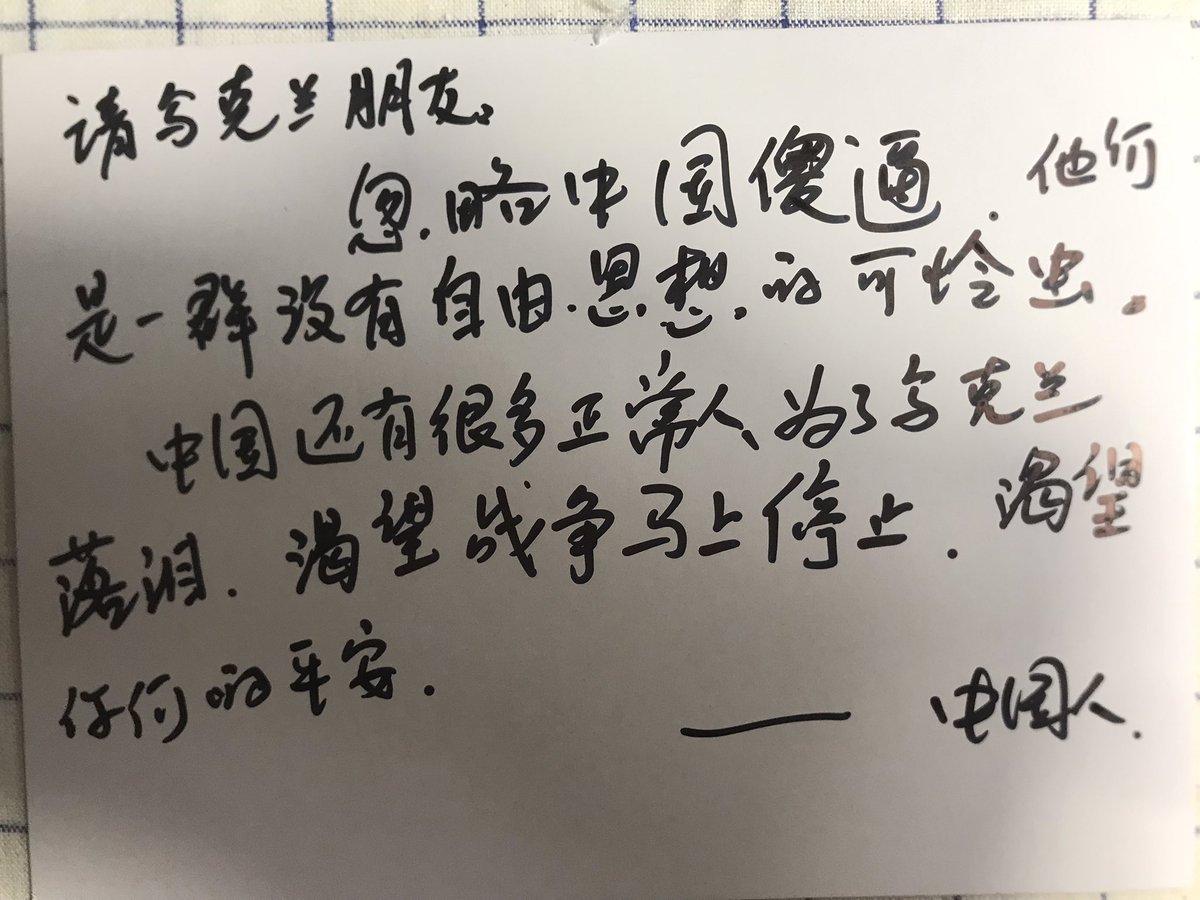 请乌克兰朋友。
忽略中国傻逼.他们
是一群没有自由.思想.的可怜虫。
中国还有很多正常人为了乌克兰
落泪.渴望战争马上停止.渴望
你们的平安.
—— 中国人.